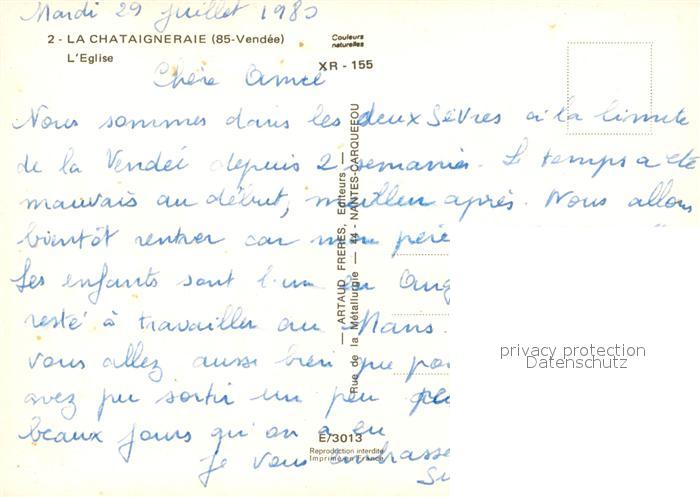 Mardi 29 Juillet 1980
2 - LA CHATAIGNERAIE (85-Vendée)
L'Eglise
Couleurs
naturelles
XR - 155
Chère Amie
Nous sommes dans les deux Sèvres à la limite
de la Vendée depuis 2 semaines. Le temps a été
mauvais au début, meilleur après. Nous allons
bientôt rentrer car mon père
Les enfants sont l'un en Ang
resté à travailler au Mans.
vous allez aussi bien que pos
avez pu sortir un peu
beaux jours qu'on a eu
Je vous embrasse
Su
— ARTAUD FRERES, Editeurs —
Rue de la Métallurgie — 44 - NANTES-CARQUEFOU
E/3013
Reproduction interdite
Imprimé en France
privacy protection
Datenschutz